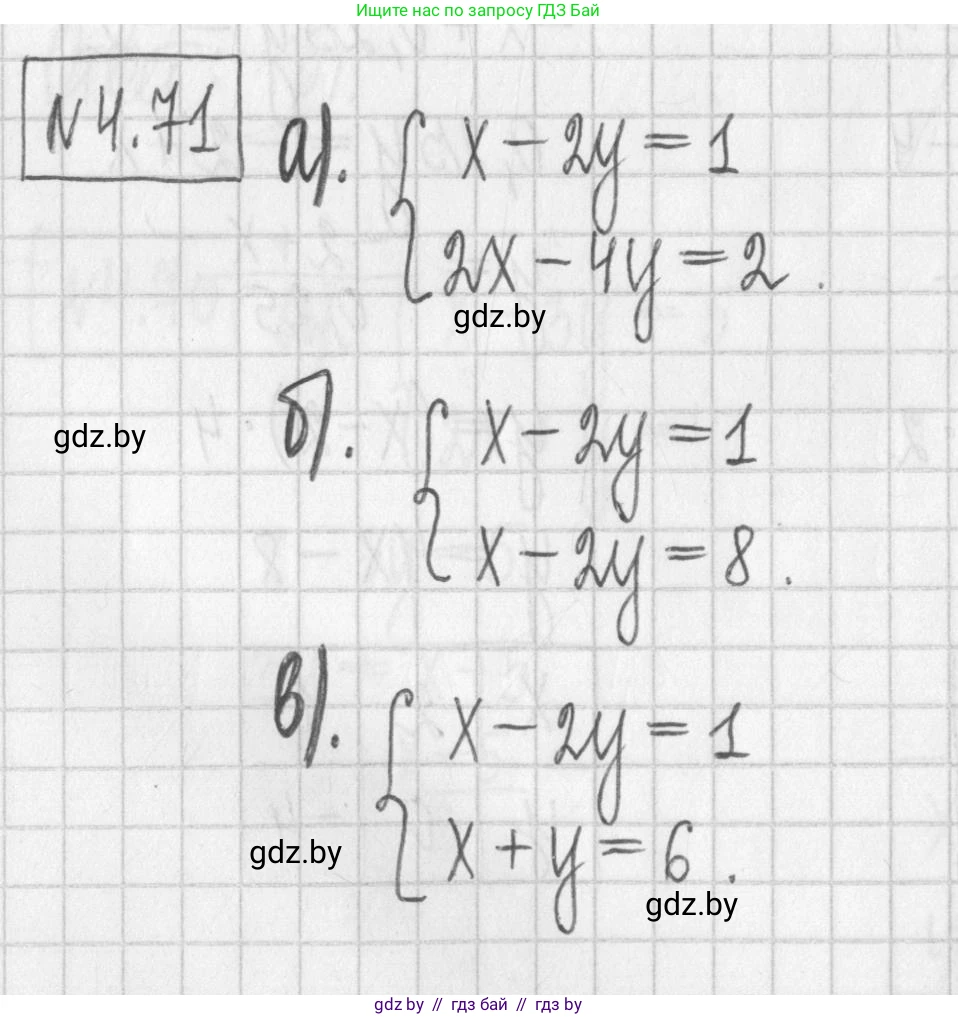 Ищите нас по запросу ГДЗ Бай
N 4.71
а). x - 2y = 1
2x - 4y = 2.
gdz.by
б). x - 2y = 1
gdz.by
x - 2y = 8.
в). x - 2y = 1
x + y = 6.
gdz.by
gdz.by
gdz by // гдз бай // гдз by